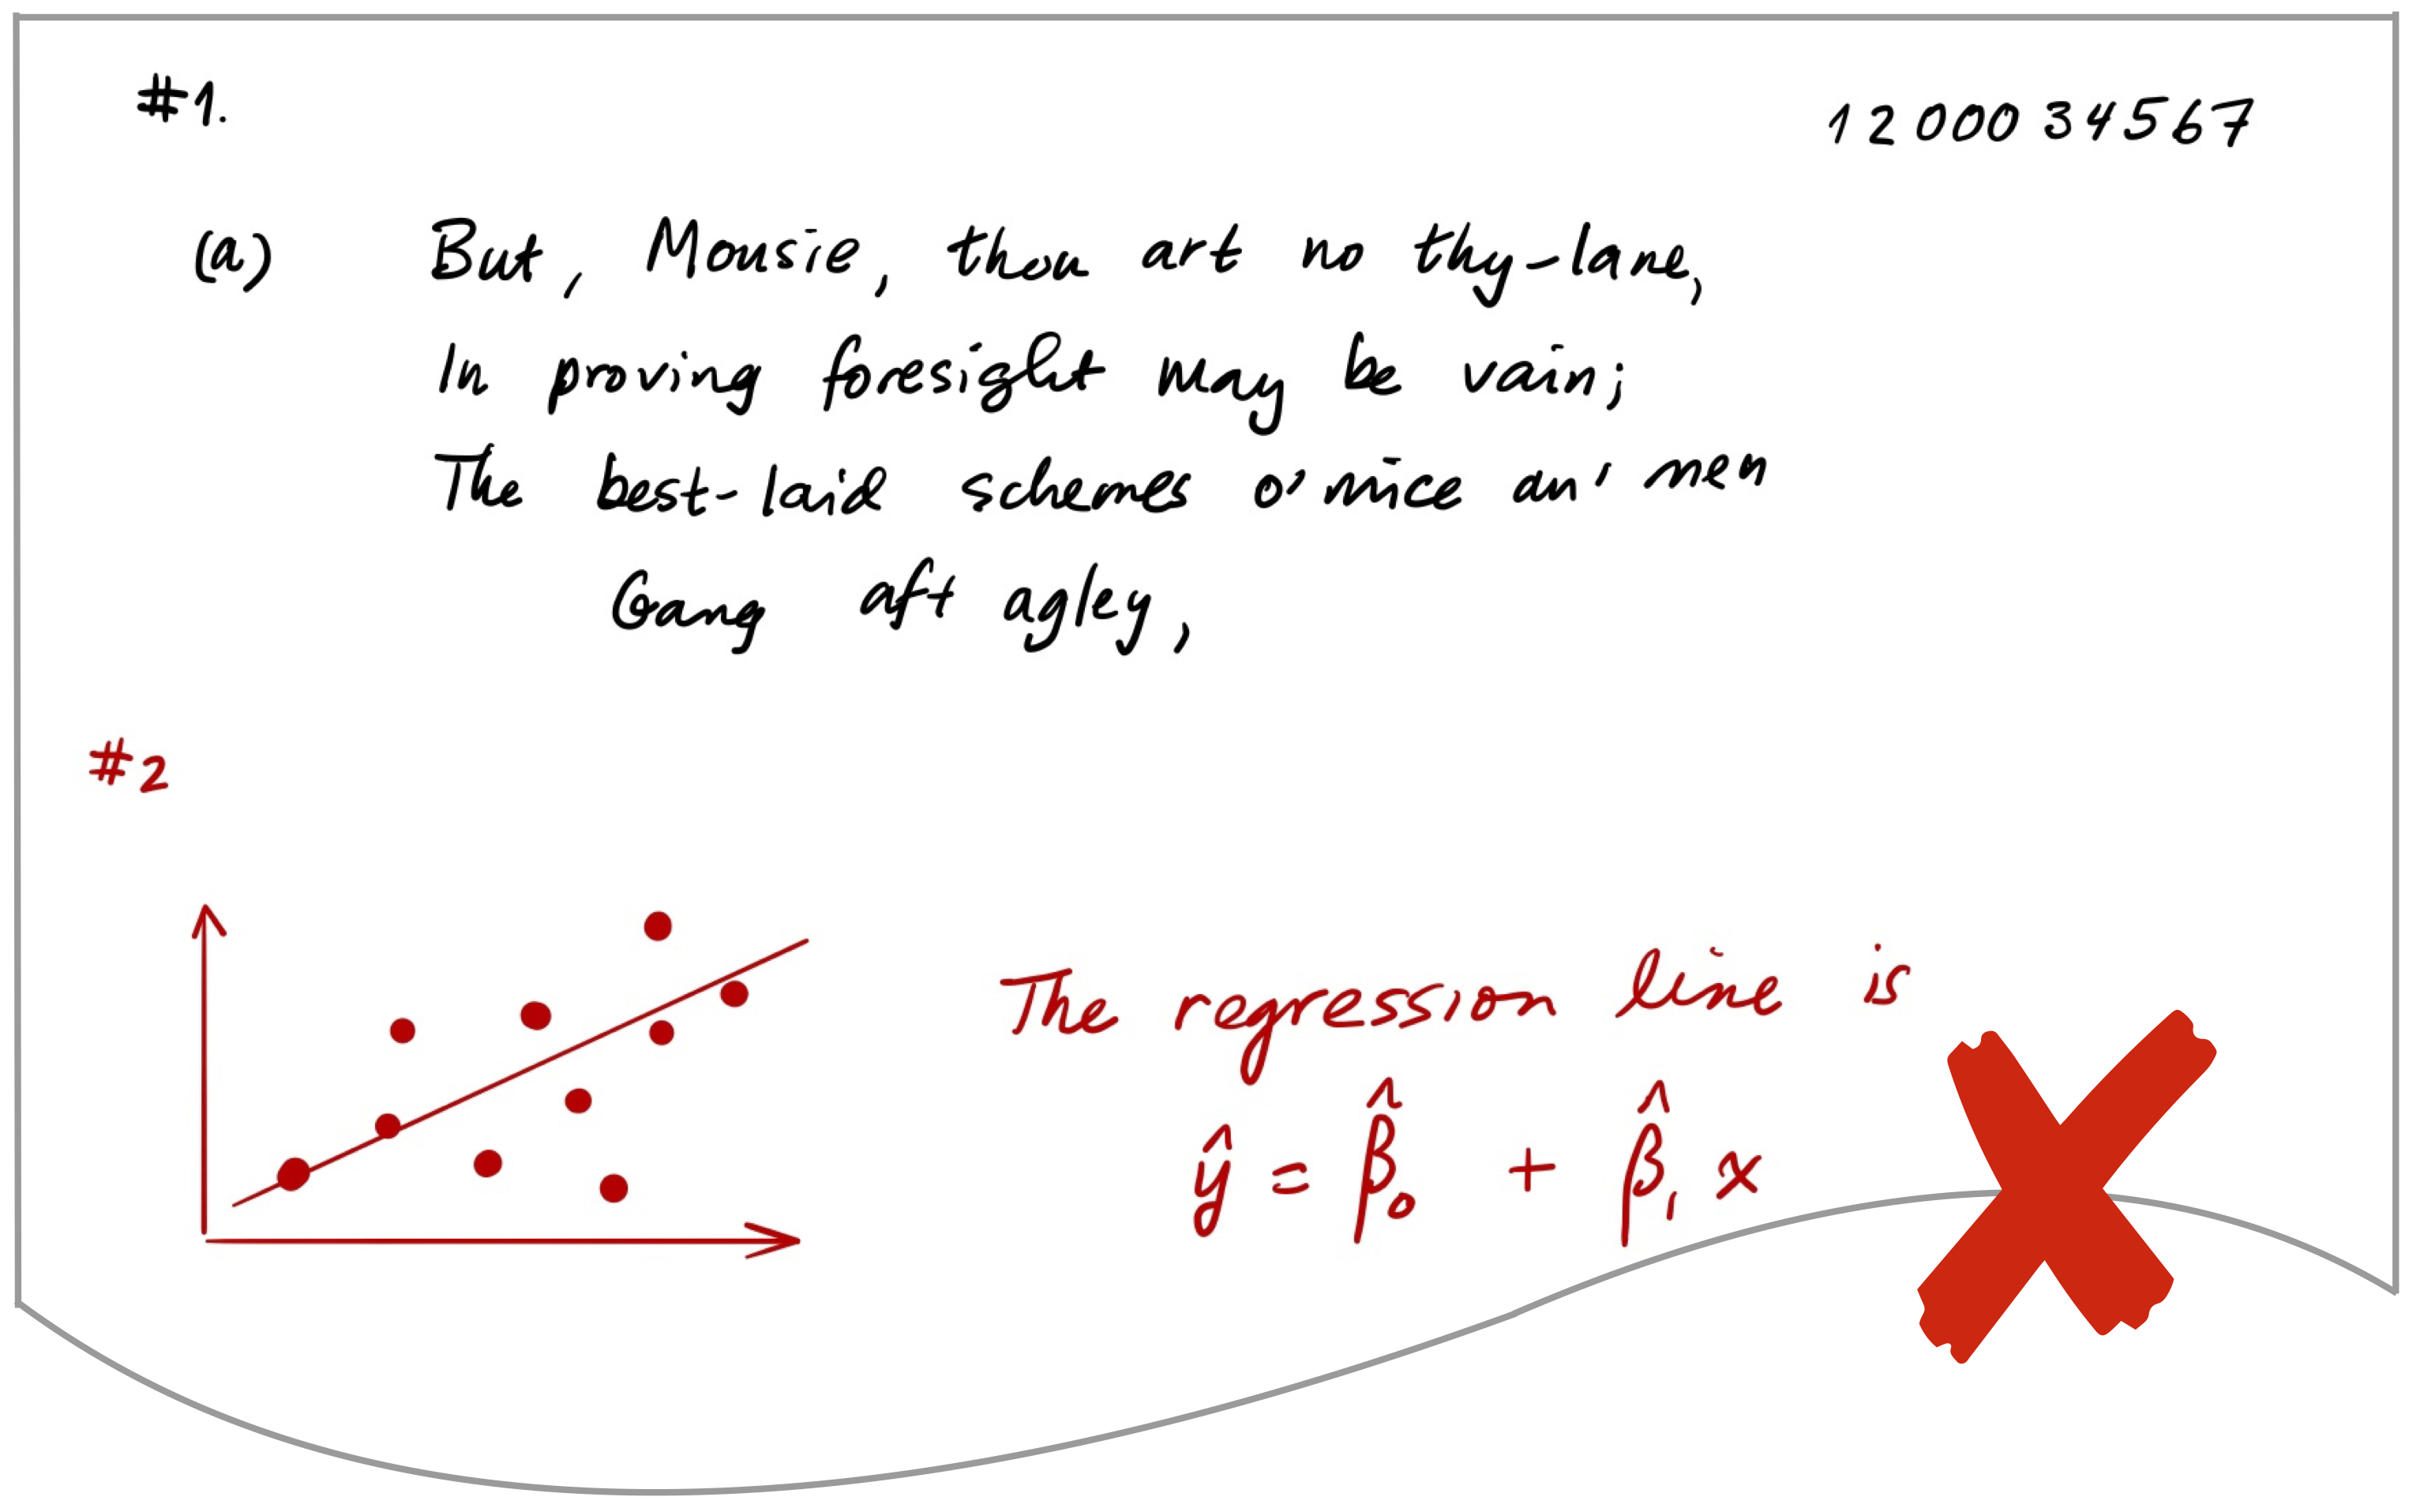 #1.
1200034567
(a) But, Mousie, thou art no thy-lane,
In proving foresight may be vain;
The best-laid schemes o' mice an' men
Gang aft agley,
#2
The regression line is
ŷ = β̂₀ + β̂₁ x